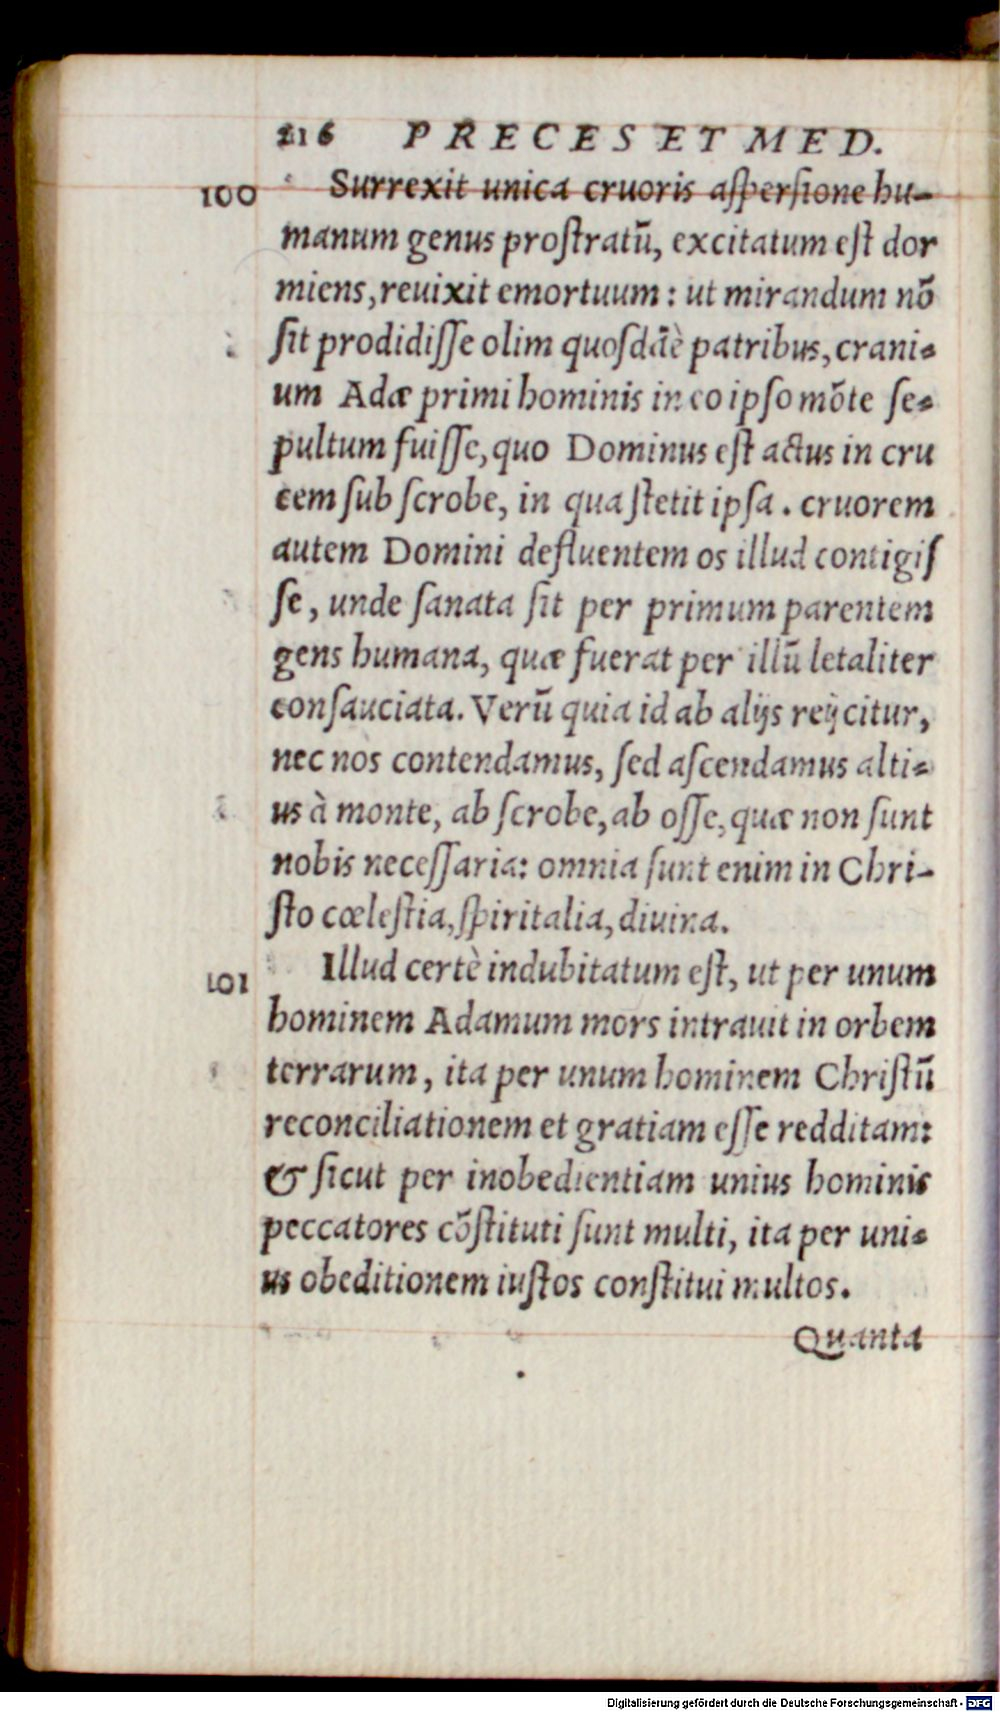 216 PRECES ET MED.
100 Surrexit unica cruoris aſperſione hu-
manum genus proſtratū, excitatum eſt dor
miens, reuixit emortuum: ut mirandum nō
ſit prodidiſſe olim quoſdā è patribus, crani-
um Adæ primi hominis in eo ipſo mōte ſe-
pultum fuiſſe, quo Dominus eſt actus in cru
cem ſub ſcrobe, in qua ſtetit ipſa. cruorem
autem Domini defluentem os illud contigiſ
ſe, unde ſanata ſit per primum parentem
gens humana, quæ fuerat per illū letaliter
conſauciata. Verū quia id ab alijs reijcitur,
nec nos contendamus, ſed aſcendamus alti-
us à monte, ab ſcrobe, ab oſſe, quæ non ſunt
nobis neceſſaria: omnia ſunt enim in Chri-
ſto cœleſtia, ſpiritalia, diuina.
101 Illud certè indubitatum eſt, ut per unum
hominem Adamum mors intrauit in orbem
terrarum, ita per unum hominem Chriſtū
reconciliationem et gratiam eſſe redditam:
& ſicut per inobedientiam unius hominis
peccatores cōſtituti ſunt multi, ita per uni-
us obeditionem iuſtos conſtitui multos.
Quanta
Digitalisierung gefördert durch die Deutsche Forschungsgemeinschaft - DFG